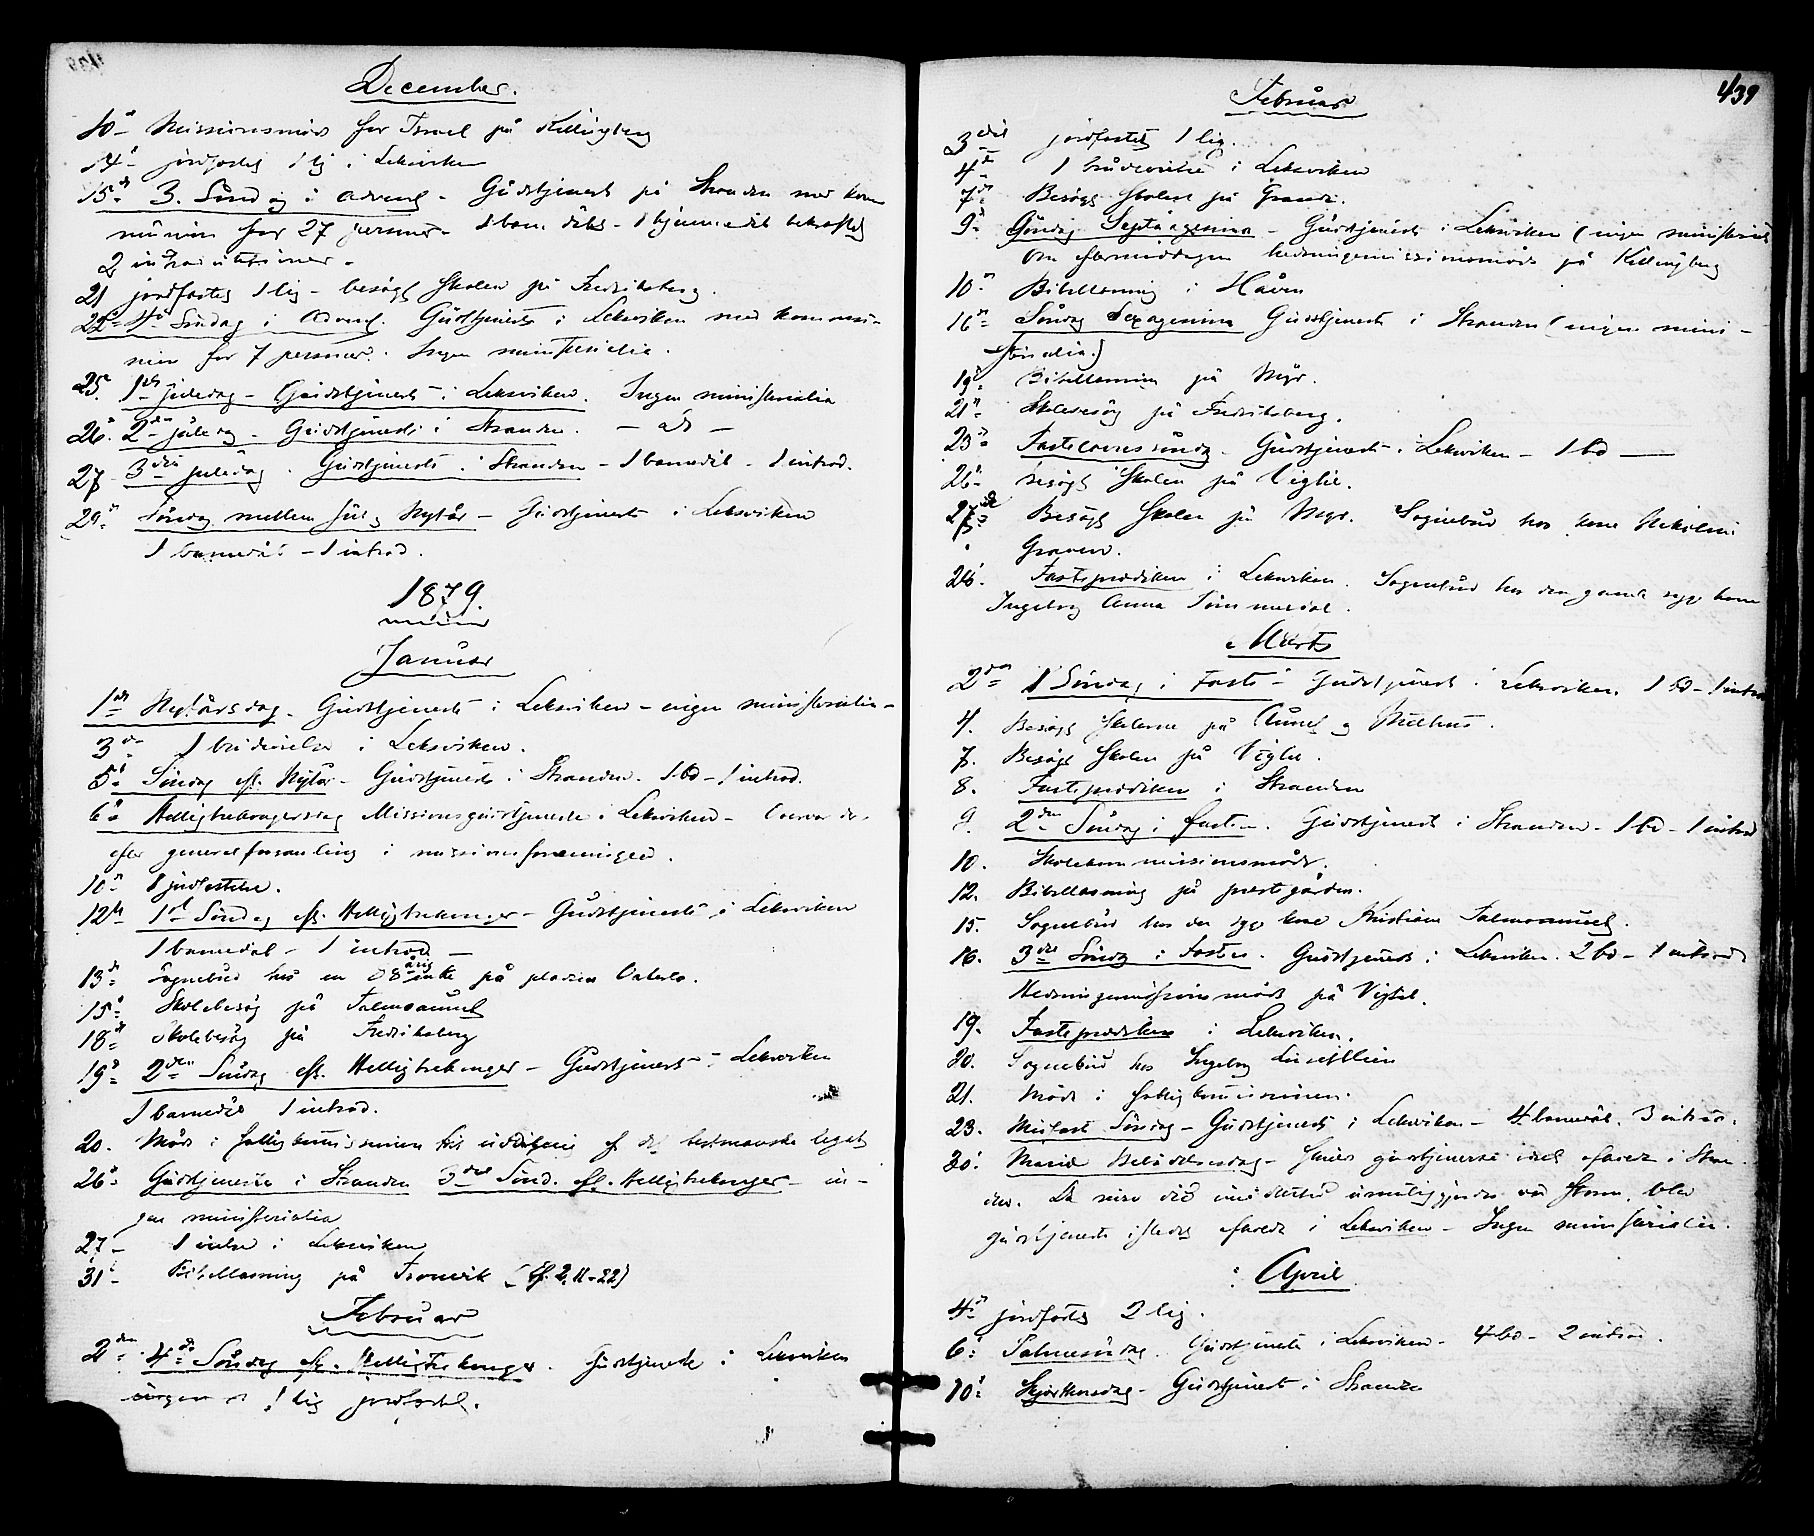 December.
10de Missionsmøde for Israel på Killingberg
14de jordfæstet 1 lig i Leksviken
15de 3. Søndag i Advent - Gudstjeneste på Stranden med kom
munion for 27 personer - 1 barn døbt - 1 hjemmedåb bekræftet
2 introductioner -
21 jordfæstet 1 lig - besøgt Skolen på Fredriksberg.
22de 4de Søndag i Advent. Gudstjeneste i Leksviken med kommu-
nion for 7 personer. Ingen ministerialia.
25de 1ste juledag - Gudstjeneste i Leksviken. Ingen ministerialia
26de 2den juledag - Gudstjeneste i Stranden. - do -
27 3die juledag. Gudstjeneste i Stranden - 1 barnedåb - 1 introd.
29de Søndag mellem Jul og Nytår - Gudstjeneste i Leksviken
1 barnedåb - 1 introd.
1879.
Januar
1ste Nytårsdag. Gudstjeneste i Leksviken - ingen ministerialia -
3die 1 brudevielse i Leksviken.
5te Søndag eft. Nytår - Gudstjeneste i Stranden. 1 bd - 1 introd.
6te Helligtrekongersdag Missionsgudstjeneste i Leksviken -
efter generalforsamling i missionsforeningen.
10de 1 jordfæstelse.
12te 1ste Søndag eft. Helligtrekonger - Gudstjeneste i Leksviken
1 barnedåb - 1 introd -
13de Sognebud hos en 08 årig enke på pladsen
15de Skolebesøg på Talmoaunet
18de Skolebesøg på Fredriksberg
19de 2den Søndag eft. Helligtrekonger - Gudstjeneste i Leksviken
1 barnedåb 1 introd.
20. Møde i fattigkommissionen
26de Gudstjeneste i Stranden 3die Sønd. eft. Helligtrekonger - in-
gen ministerialia
27 - 1 vielse i Leksviken
31te Bibellæsning på Tronvik (Ef. 2, 11-22)
Februar
2den 4de Søndag eft. Helligtrekonger. Gudstjeneste i Leksviken
ingen 1 lig jordfæstet.
439
Februar
3die jordfæstet 1 lig.
4de 1 brudevielse i Leksviken
7de Besøgt Skolen på Grande.
9de Søndag Septuagesima - Gudstjeneste i Leksviken (ingen ministerial
Om eftermiddagen hedningemissionsmøde på Killingberg
10de Bibellæsning i Håven
16de Søndag Sexagesima Gudstjeneste i Stranden (ingen mini-
sterialia.)
19de Bibellæsning på Myr.
21de Skolebesøg på Fredriksberg.
23de Fastelavnssøndag. Gudstjeneste i Leksviken - 1 bd -
26de besøgt Skolen på Vigtil.
27de Besøgt Skolen på Myr. Sognebud hos kone Nikoline
Graven.
28. Fasteprædiken i Leksviken. Sognebud hos den gamle syge kone
Ingeborg Anna Tømmerdal.
Marts
2den 1 Søndag i Faste - Gudstjeneste i Leksviken. 1 bd - 1 introd
4. Besøgt Skolerne på Aunet og Melhus.
7. Besøgt Skolen på Vigtil.
8. Fasteprædiken i Stranden
9. 2den Søndag i Fasten. Gudstjeneste i Stranden - 1 bd - 1 introd
10. Skolekommissionsmøde.
12. Bibellæsning på prestegården.
15. Sognebud hos den syge kone Kristiane Talmoaunet.
16. 3die Søndag i Fasten. Gudstjeneste i Leksviken. 2 bd - 1 introd
Hedningemissionsmøde på Vigtil.
19. Fasteprædiken i Leksviken.
20. Sognebud hos Ingeborg
21. Møde i fattigkommissionen.
23. Midfaste Søndag - Gudstjeneste i Leksviken - 4 barnedåb. 3 introd.
30. Mariæ Bebudelsesdag - skulde gudstjeneste været afholdt i Stran
den. Da reise did imidlertid umuliggjordes ved Storm, blev
gudstjeneste istedet afholdt i Leksviken - Ingen ministerialia.
April
4de jordfæstet 2 lig.
6te Palmesøndag. Gudstjeneste i Leksviken - 4 bd - 2 introd.
10de Skjærthorsdag - Gudstjeneste i Stranden